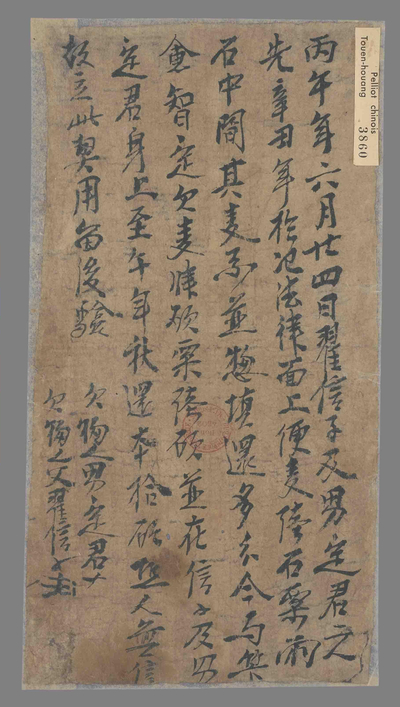 Pelliot chinois
Touen-houang 3860
丙午年六月廿四日翟信子及男定君二人
先辛丑年於氾法律面上便麦陸石粟兩
石中間其麦粟並惣填還多分今与筭
會智定欠麦肆碩粟陸碩並在信子及男
定君身上至午年秋還本拾碩恐人無信
故立此契用留後驗
欠物人男定君
欠物人父翟信子